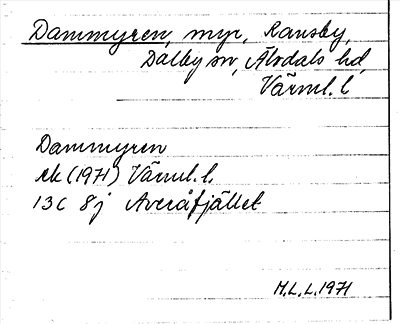 Dammyren, myr, Ransby,
Dalby sn, Älvdals hd,
Värml. l
Dammyren
ek (1971) Värml. l.
13C 8j Averåfjället
M.L.L. 1971